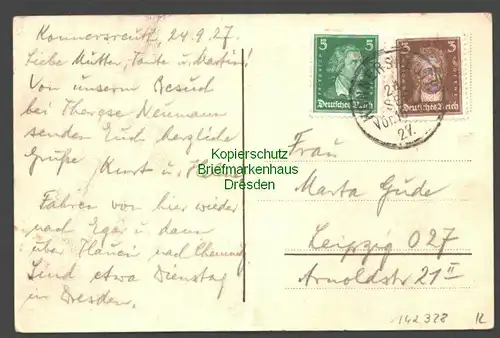 Konnersreuth, 24.9.27.
Liebe Mutter, Tante u. Martin!
Von unserm Besuch
bei Therese Neumann
senden Euch herzliche
Grüße, Kurt u.
Fahren von hier wieder
nach Eger u. dann
über nach Chemnitz
Sind etwa Dienstag
in Dresden.
5 5
Deutsches Reich
3 3
Deutsches Reich
27.
Kopierschutz
Briefmarkenhaus
Dresden
Frau
Marta Gude
Leipzig O 27
Arnoldstr 21 II
142328